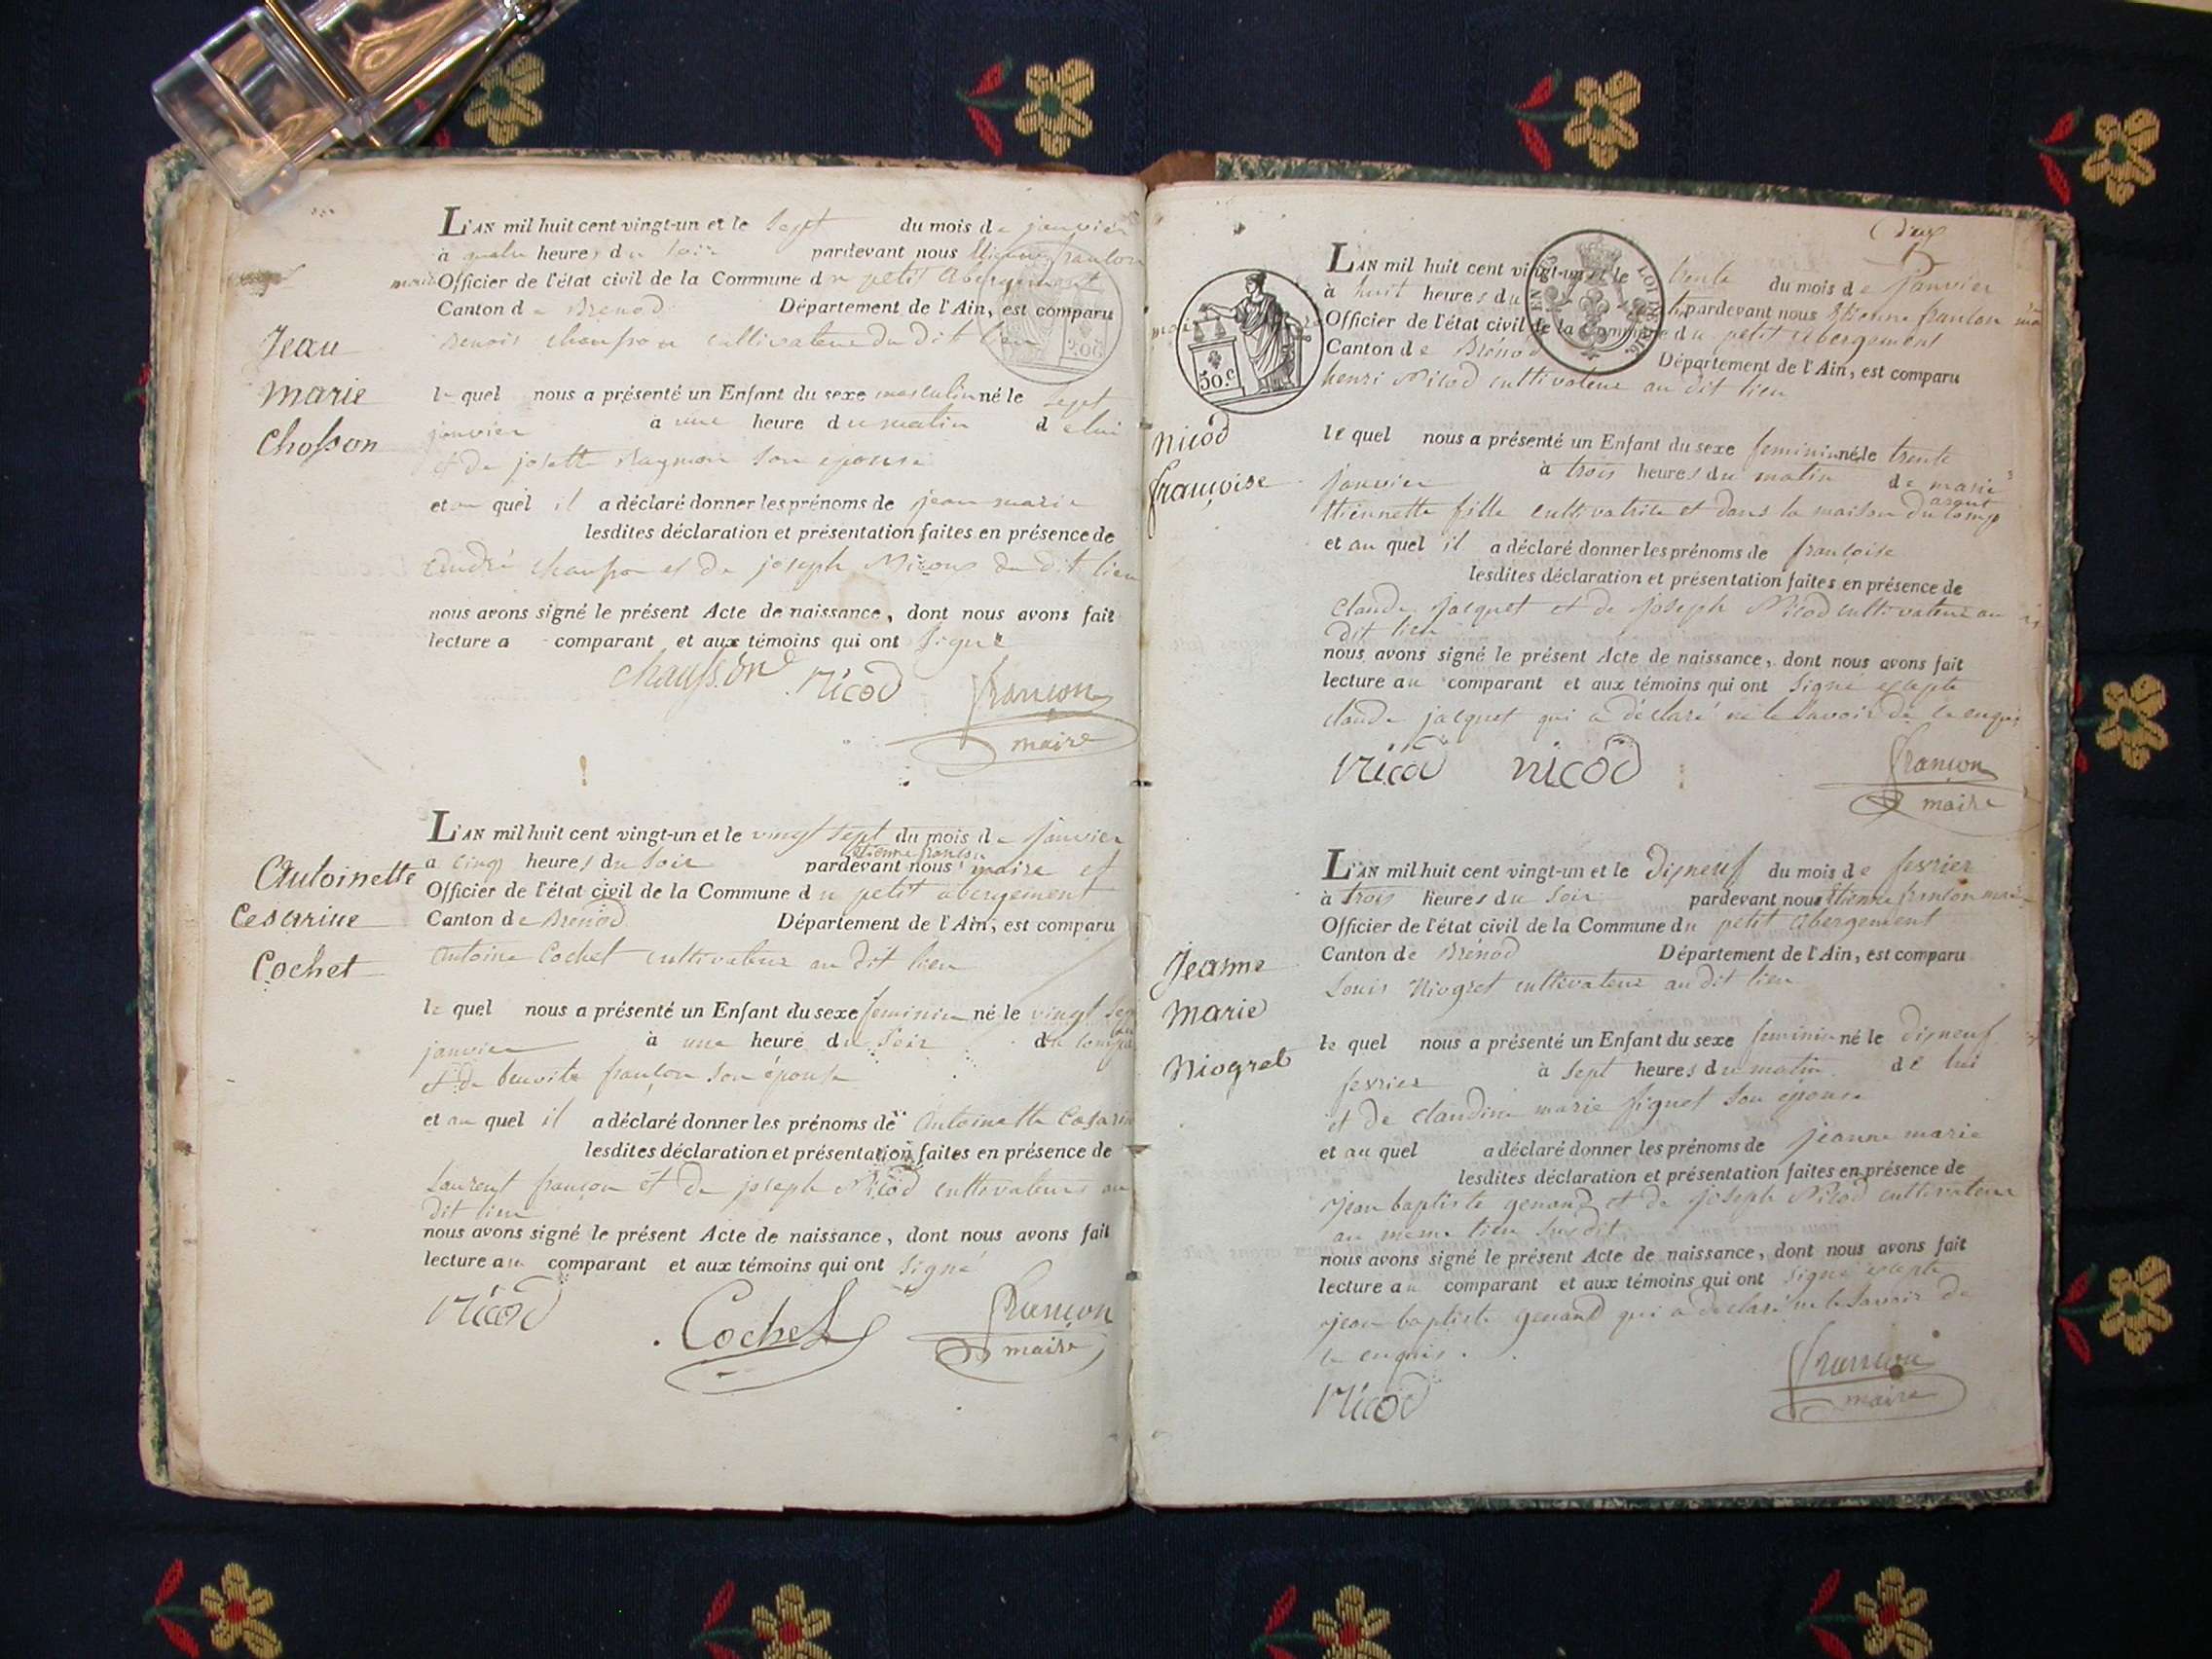 L'AN mil huit cent vingt-un et le sept du mois de janvier
à heures du soir pardevant nous Etienne françon
maire Officier de l'état civil de la Commune du petit abergement
Canton de Brenod Département de l'Ain, est comparu
Benoit chausson cultivateur du dit lieu
Jean
marie
Chosson
le quel nous a présenté un Enfant du sexe masculin né le sept
janvier à une heure du matin de lui
et de josette son epouse
et au quel il a déclaré donner les prénoms de jean marie
lesdites déclaration et présentation faites en présence de
andré chausson et de joseph du dit lieu
nous avons signé le présent Acte de naissance, dont nous avons fait
lecture a comparant et aux témoins qui ont signé
chausson Nicod françon
maire
L'AN mil huit cent vingt-un et le vingt sept du mois de janvier
Etienne françon
à cinq heures du soir pardevant nous maire et
Officier de l'état civil de la Commune du petit abergement
Canton de Brenod Département de l'Ain, est comparu
Antoine Cochet cultivateur au dit lieu
Antoinette
Cesarine
Cochet
le quel nous a présenté un Enfant du sexe feminin né le vingt sept
janvier à une heure du soir du
et de benoite françon son épouse
et au quel il a déclaré donner les prénoms de Antoinette Cesarine
lesdites déclaration et présentation faites en présence de
Laurent françon et de joseph Nicod cultivateurs au
dit lieu
nous avons signé le présent Acte de naissance, dont nous avons fait
lecture au comparant et aux témoins qui ont signé
Nicod Cochet françon
maire
deux
50.c
L'AN mil huit cent vingt-un et le trente du mois de Janvier
à huit heures du pardevant nous Etienne françon
Officier de l'état civil de la Commune du petit abergement
Canton de Brénod Département de l'Ain, est comparu
henri Nicod cultivateur au dit lieu
nicod
françoise
le quel nous a présenté un Enfant du sexe feminin né le trente
janvier à trois heures du matin de marie
Etiennette fille cultivatrice et dans la maison du comp
arant
et au quel il a déclaré donner les prénoms de françoise
lesdites déclaration et présentation faites en présence de
Claude jacquet et de joseph Nicod cultivateur au
dit lieu
nous avons signé le présent Acte de naissance, dont nous avons fait
lecture au comparant et aux témoins qui ont signé
claude jacquet qui a déclaré ne le savoir de ce enquis
nicod nicod françon
maire
L'AN mil huit cent vingt-un et le disneuf du mois de fevrier
à trois heures du soir pardevant nous Etienne françon maire
Officier de l'état civil de la Commune du petit abergement
Canton de Brénod Département de l'Ain, est comparu
Louis Niogret cultivateur au dit lieu
Jeanne
marie
Niogret
le quel nous a présenté un Enfant du sexe feminin né le disneuf
fevrier à sept heures du matin de lui
et de claudine marie figuet son épouse
et au quel a déclaré donner les prénoms de jeanne marie
lesdites déclaration et présentation faites en présence de
jean baptiste genand et de joseph Nicod cultivateur
au meme lieu susdit
nous avons signé le présent Acte de naissance, dont nous avons fait
lecture au comparant et aux témoins qui ont signé
jean baptiste genand qui a declaré ne le savoir de
ce enquis.
Nicod françon
maire